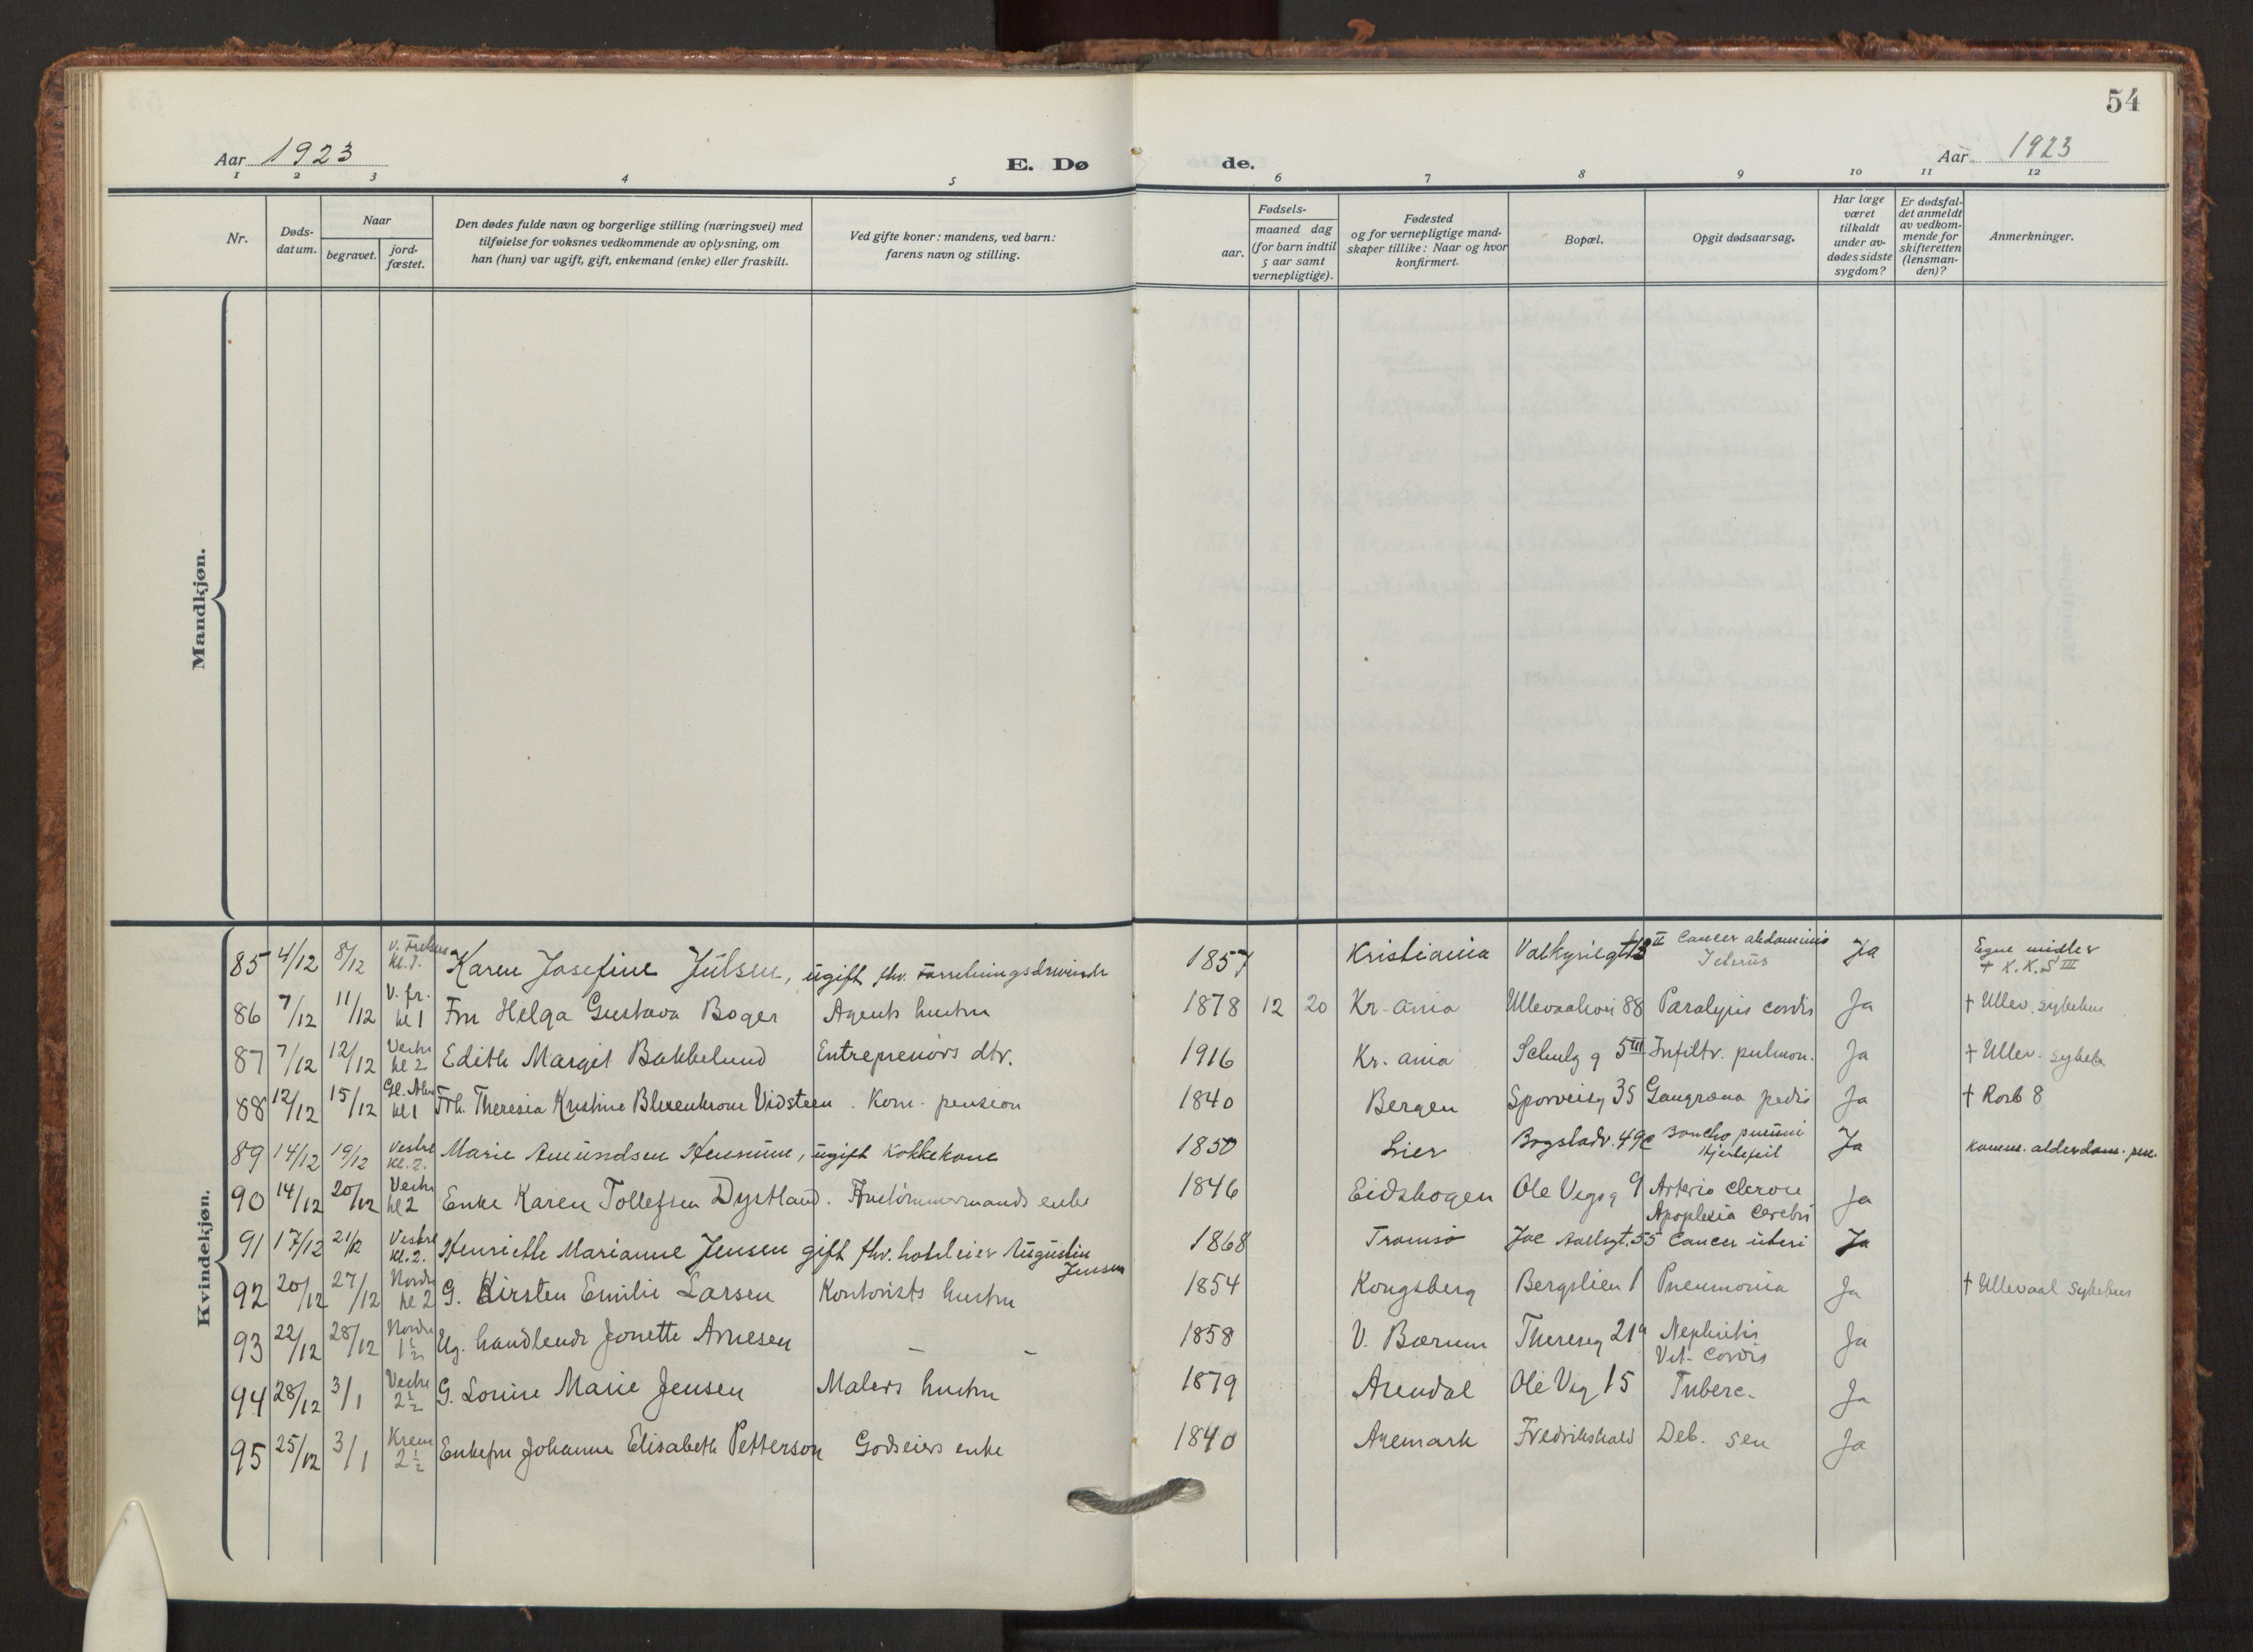 54
Aar 1923
E. Dø de.
Aar 1923
1 2 3 4 5 6 7 8 9 10 11 12
Nr.
Døds-
datum.
Naar
begravet.
jord-
fæstet.
Den dødes fulde navn og borgerlige stilling (næringsvei) med
tilføielse for voksnes vedkommende av oplysning, om
han (hun) var ugift, gift, enkemand (enke) eller fraskilt.
Ved gifte koner: mandens, ved barn:
farens navn og stilling.
Fødsels-
aar.
maaned dag
(for barn indtil
5 aar samt
vernepligtige).
Fødested
og for vernepligtige mand-
skaper tillike: Naar og hvor
konfirmert.
Bopæl.
Opgit dødsaarsag.
Har læge
været
tilkaldt
under av-
dødes sidste
sygdom?
Er dødsfal-
det anmeldt
av vedkom-
mende for
skifteretten
(lensman-
den)?
Anmerkninger.
Mandkjøn.
Kvindekjøn.
85 4/12 8/12 V. Frelsers Kl. 1. Karen Josefine Julsen, ugift fhv. 1857 Kristiania Cancer abdominis Ja Egne midler
Icterus † K.K.S III
86 7/12 11/12 V. fr. kl 1 Fru Helga Gustava Boger Agents hustru 1878 12 20 Kr-ania Ullevaalvei 88 Paralysis cordis Ja † Ullev. sykehus
87 7/12 12/12 Vestre kl 2 Edith Margit Bakkelund Entreprenørs dtr. 1916 Kr. ania Schulz g 5 III Infiltr. pulmon. Ja † Ullev. sykeh
88 12/12 15/12 Gl. Aker kl 1 Frk. Theresia Kristine Vidsteen. Kom. pension 1840 Bergen Sporveisg 35 Gangræna pedis Ja †
89 14/12 19/12 Vestre Kl. 2. Marie Amundsen ugift Kokkekone 1850 Lier Bogstadv. 49c pneumi Ja Komm. alderdom.
Hjertefeil
90 14/12 20/12 Vestre kl 2 Enke Karen Tollefsen Dystland. enke 1846 Eidskogen Ole Vigsg 9 Arterio clerose Ja
Apoplexia cerebri
91 17/12 21/12 Vestre Kl. 2. Henriette Marianne Jensen gift fhv. hoteleier Augustin 1868 Tromsø Jac Aallsgt. 55 Cancer uteri Ja
Jensen
92 20/12 27/12 Nordre kl 2 G. Kirsten Emilie Larsen Kontorists hustru 1854 Kongsberg Bergslien 1 Pneumonia Ja † Ullevaal sykehus
93 22/12 28/12 Nordre 1 1/2 Ug. handlende Jonette Arnesen — — 1858 V. Bærum Theresesg 21a Nephritis Ja
Vit. Cordis
94 28/12 3/1 Vestre 2 1/2 G. Louise Marie Jensen Malers hustru 1879 Arendal Ole Vig 15 Tuberc. Ja
95 25/12 3/1 Krem 2 1/2 Enkefru Johanne Elisabeth Petterson Godseiers enke 1840 Aremark Fredrikshald Deb. sen Ja